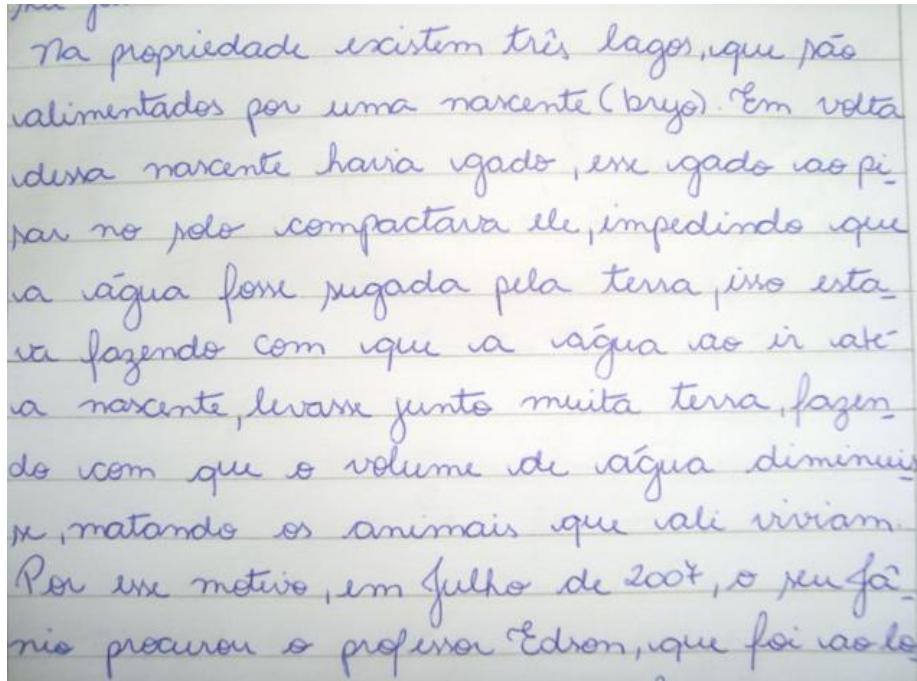 Na propriedade existem três lagos, que são
alimentados por uma nascente (brejo). Em volta
dessa nascente havia gado, esse gado ao pi-
sar no solo compactava ele, impedindo que
a água fosse sugada pela terra, isso esta-
va fazendo com que a água ao ir até
a nascente, levasse junto muita terra, fazen-
do com que o volume de água diminuis
se, matando os animais que ali viviam.
Por esse motivo, em Julho de 2007, o seu Jâ-
nio procurou o professor Edson, que foi ao lo-